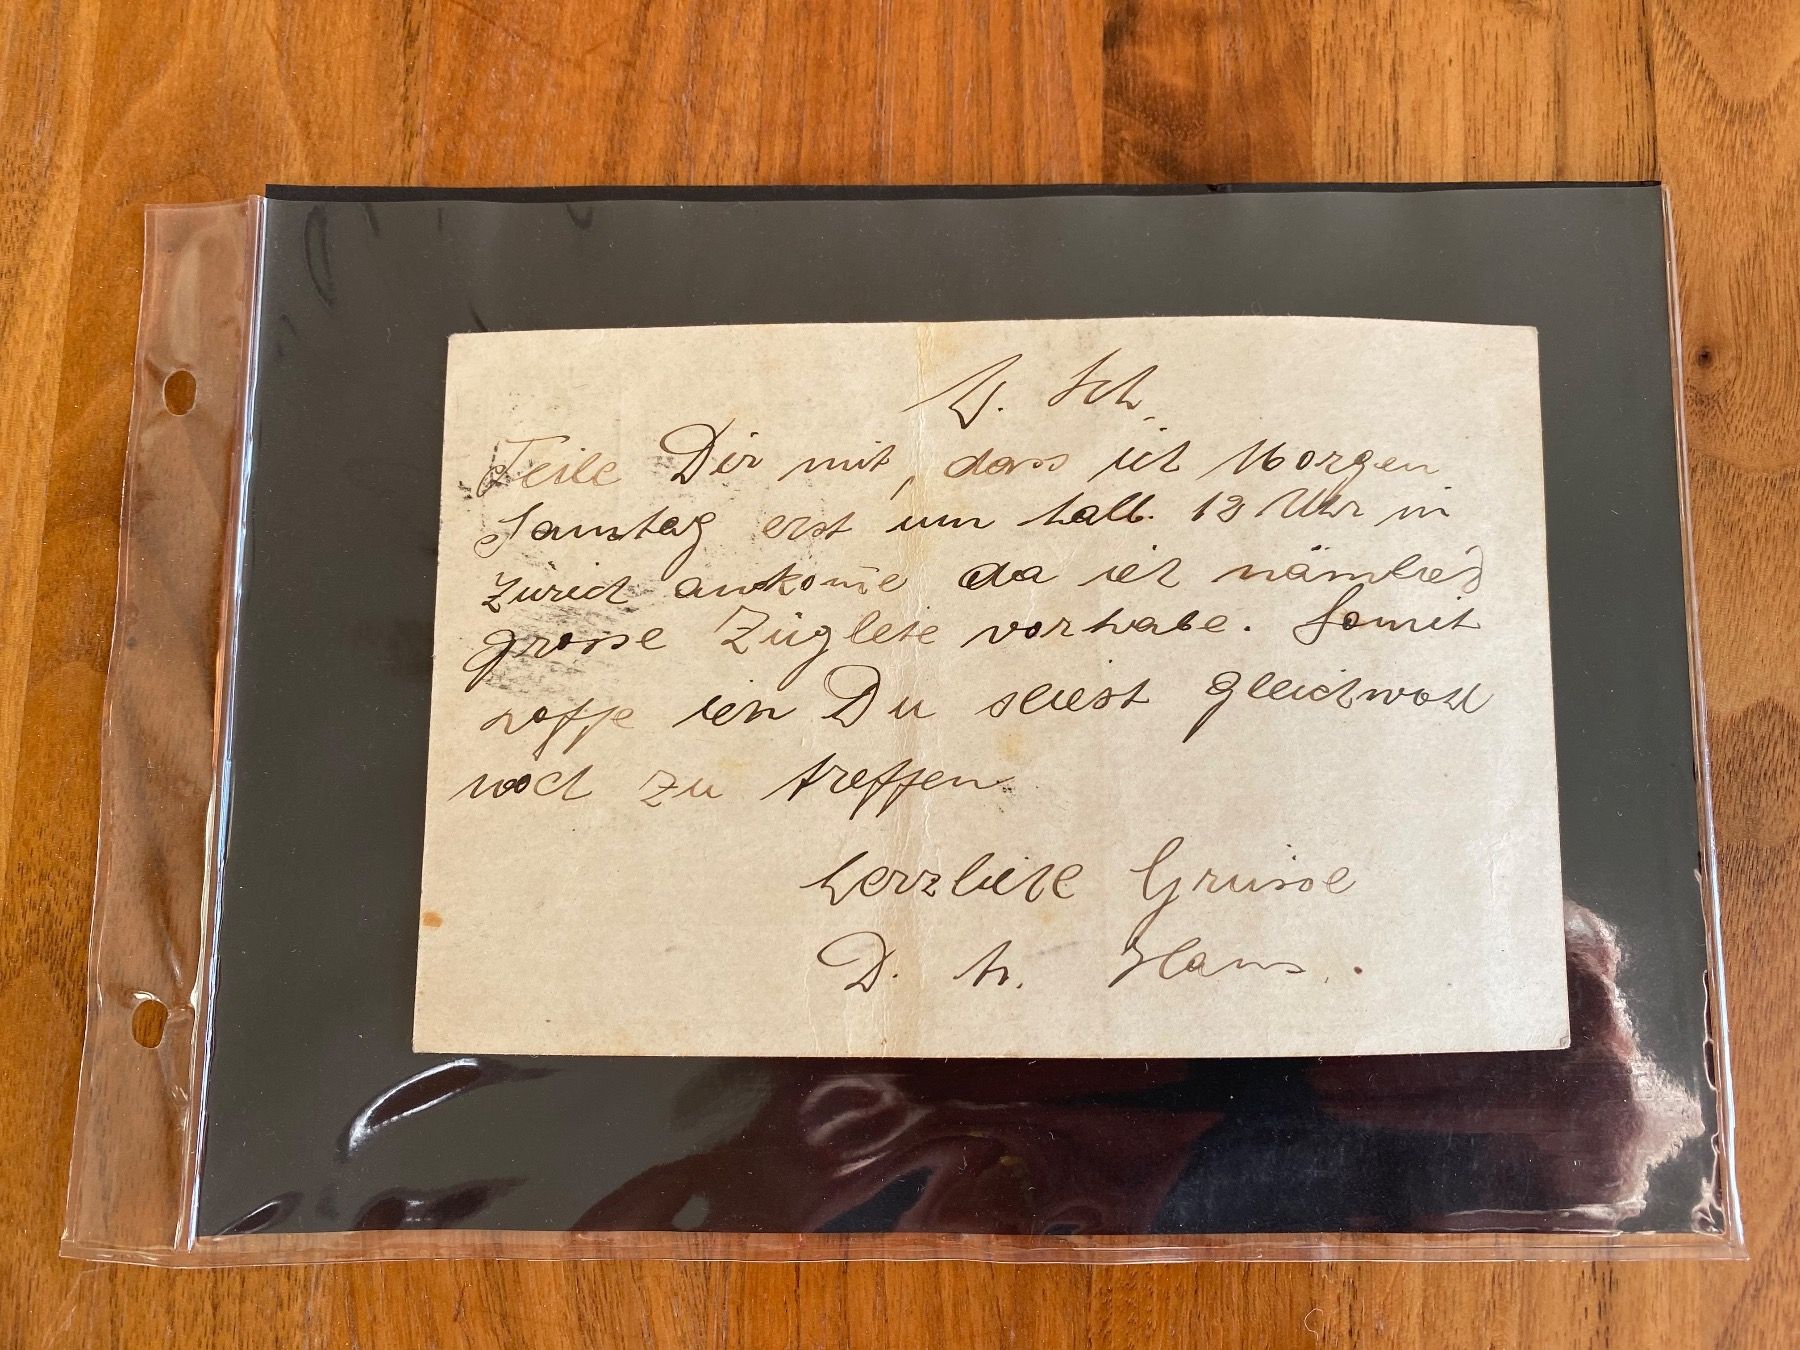 L. Sch.
Teile Dir mit, dass ich Morgen
Samstag erst um halb. 12 Uhr in
Zürich ankom̄e da ich nämlich
grosse Züglete vorhabe. Somit
hoffe ich Du seiest gleichwohl
noch zu treffen
herzliche Grüsse
D. h. Hans.